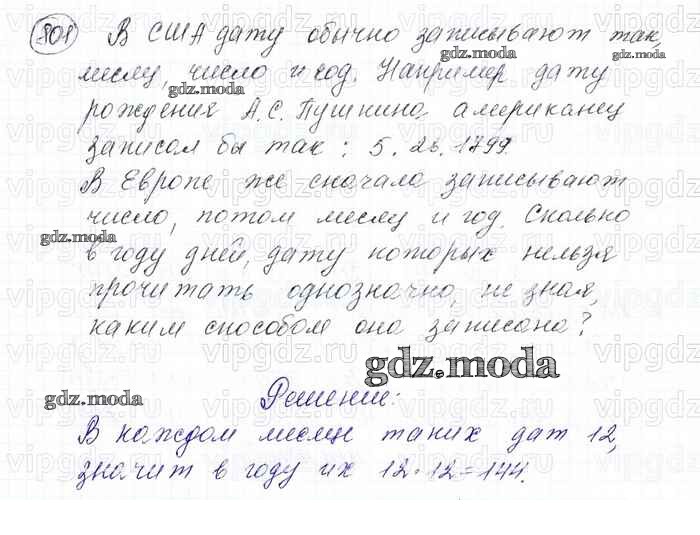 801 В США дату обычно записывают так,
месяц, число и год. Например дату
рождения А.С. Пушкина американец
записал бы так: 5.26.1799.
В Европе же сначала записывают
число, потом месяц и год. Сколько
в году дней, дату которых нельзя
прочитать однозначно, не зная,
каким способом она записана?
Решение:
В каждом месяце таких дат 12,
значит в году их 12·12=144.
gdz.moda
gdz.moda
gdz.moda
gdz.moda
gdz.moda
gdz.moda
vipgdz.ru